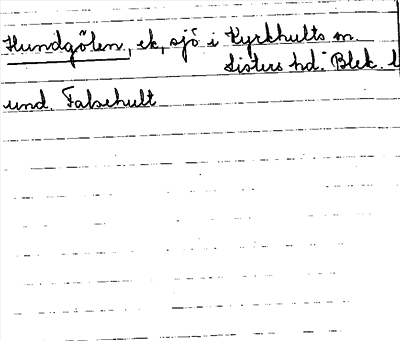 Hundgölen, ek, sjö i Kyrkhults sn
Listers hd. Blek. l
und. Falsehult